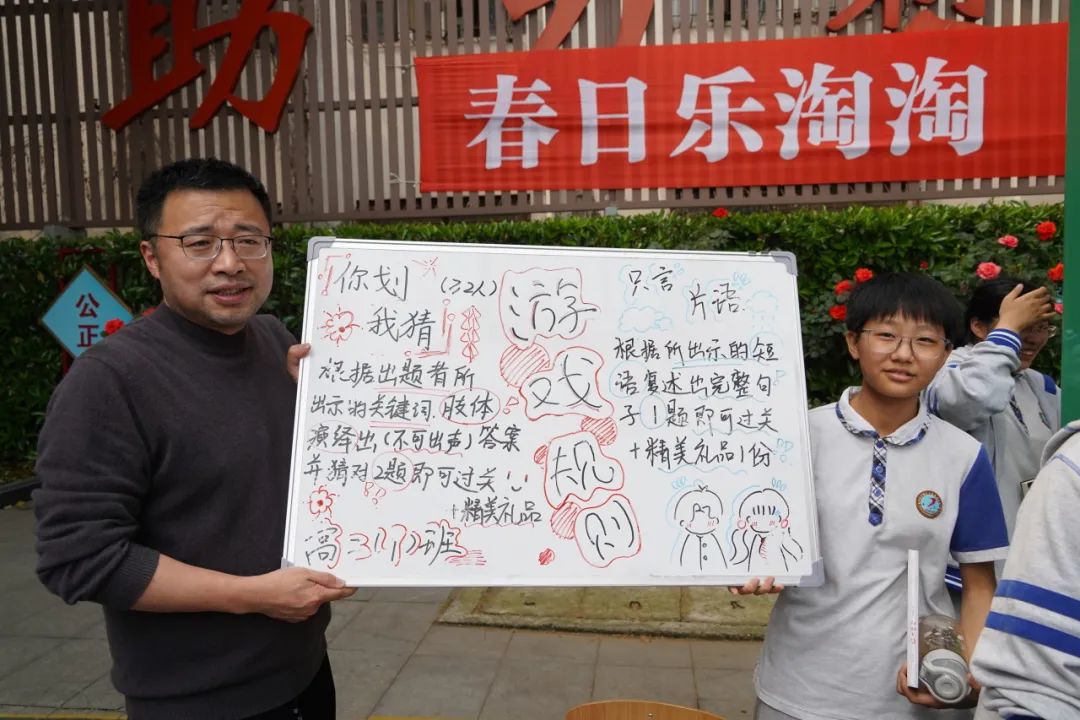 助
春日乐淘淘
公正
「你划 (≥2人)
我猜」
根据出题者所
出示的关键词,肢体
演绎出(不可出声)答案
并猜对2题即可过关
+精美礼品
高三 班
游
戏
规
则
只言
片语
根据所出示的短
语复述出完整句
子1题即可过关
+精美礼品1份